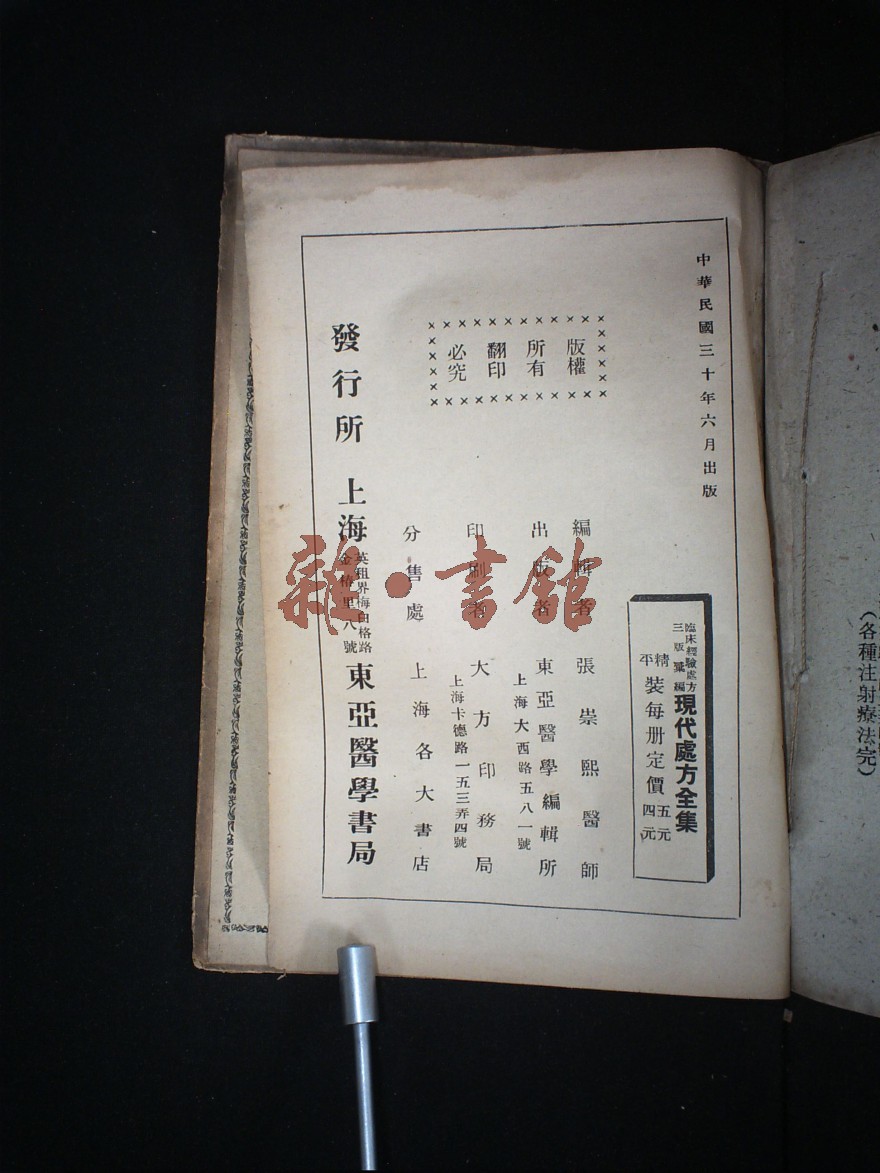 中華民國三十年六月出版
版權
所有
翻印
必究
臨床經驗處方
三版彙編
現代處方全集
精
平
裝每册定價
五元
四元
編輯者 張崇熙醫師
出版者 東亞醫學編輯所
上海大西路五八一號
印刷者 大方印務局
上海卡德路一五三弄四號
分售處 上海各大書店
發行所 上海
英租界梅白格路
金椿里八號
東亞醫學書局
雜·書館
(各種注射療法完)